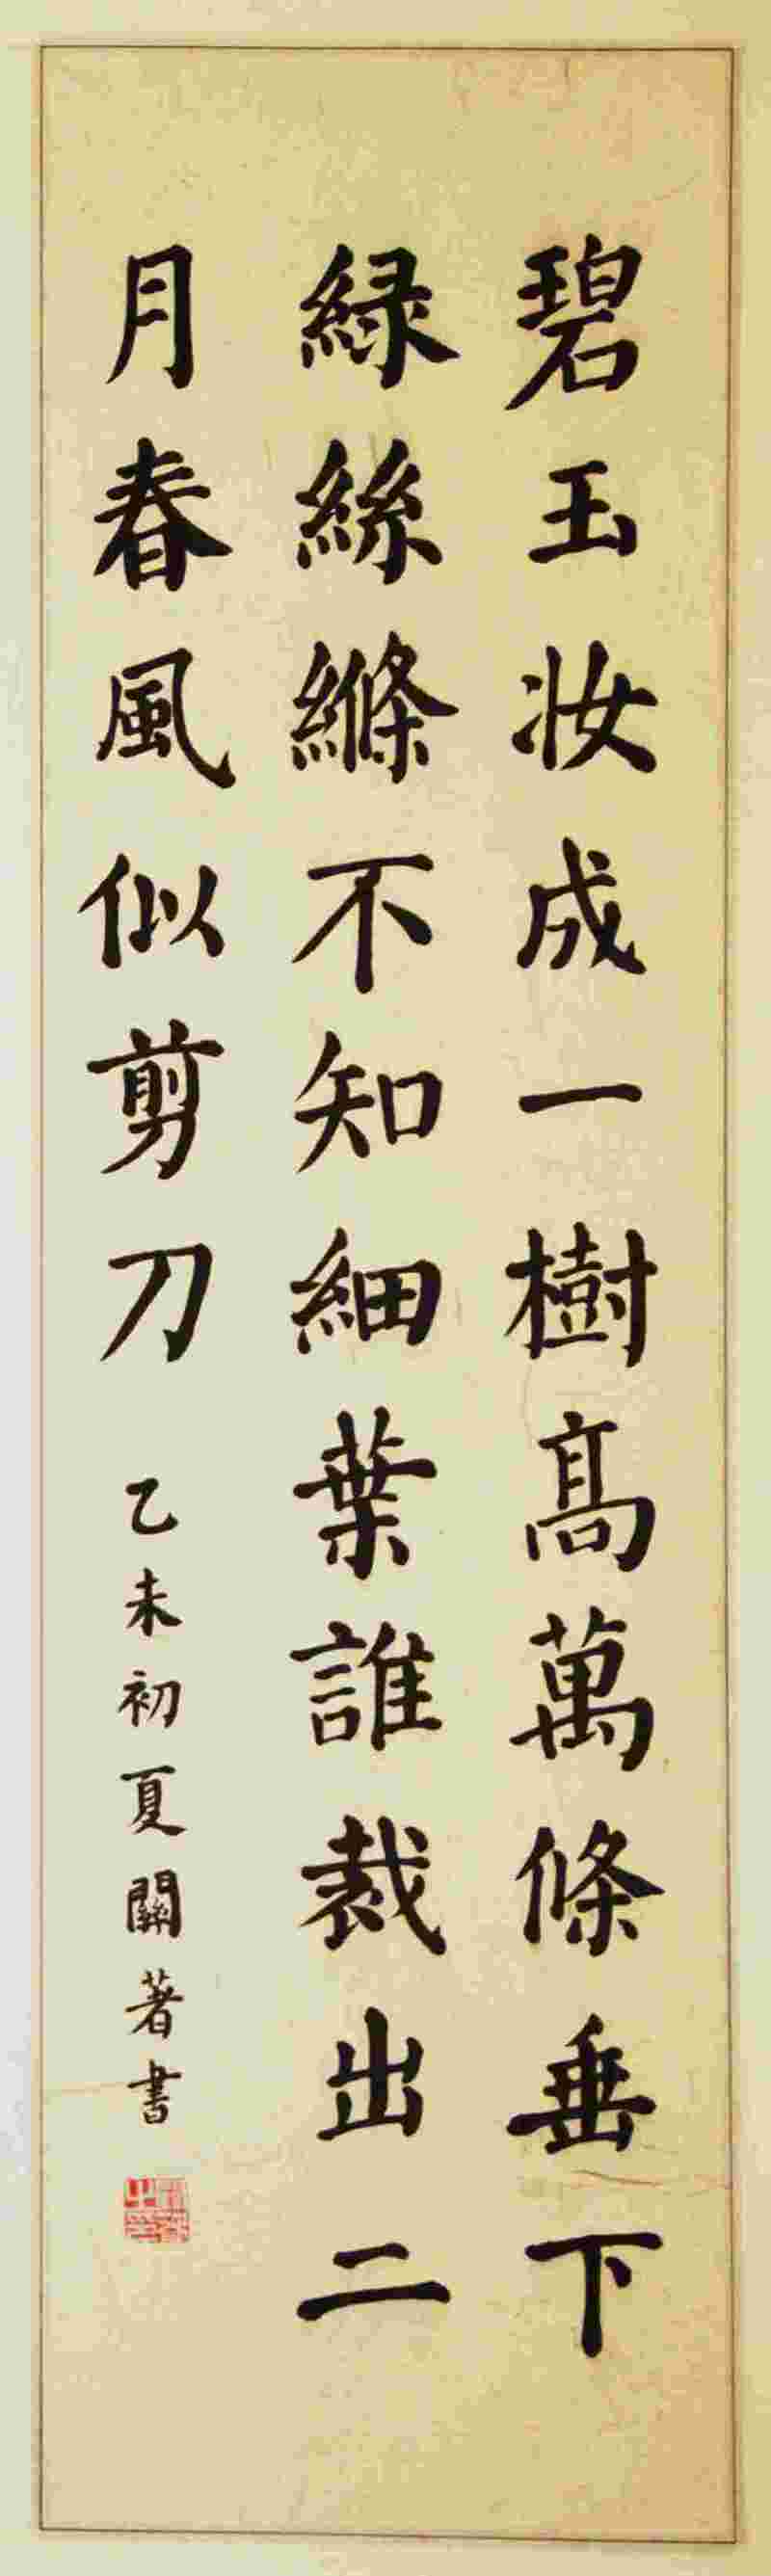 碧玉妆成一樹高萬條垂下
緑絲縧不知細葉誰裁出二
月春風似剪刀
乙未初夏關著書